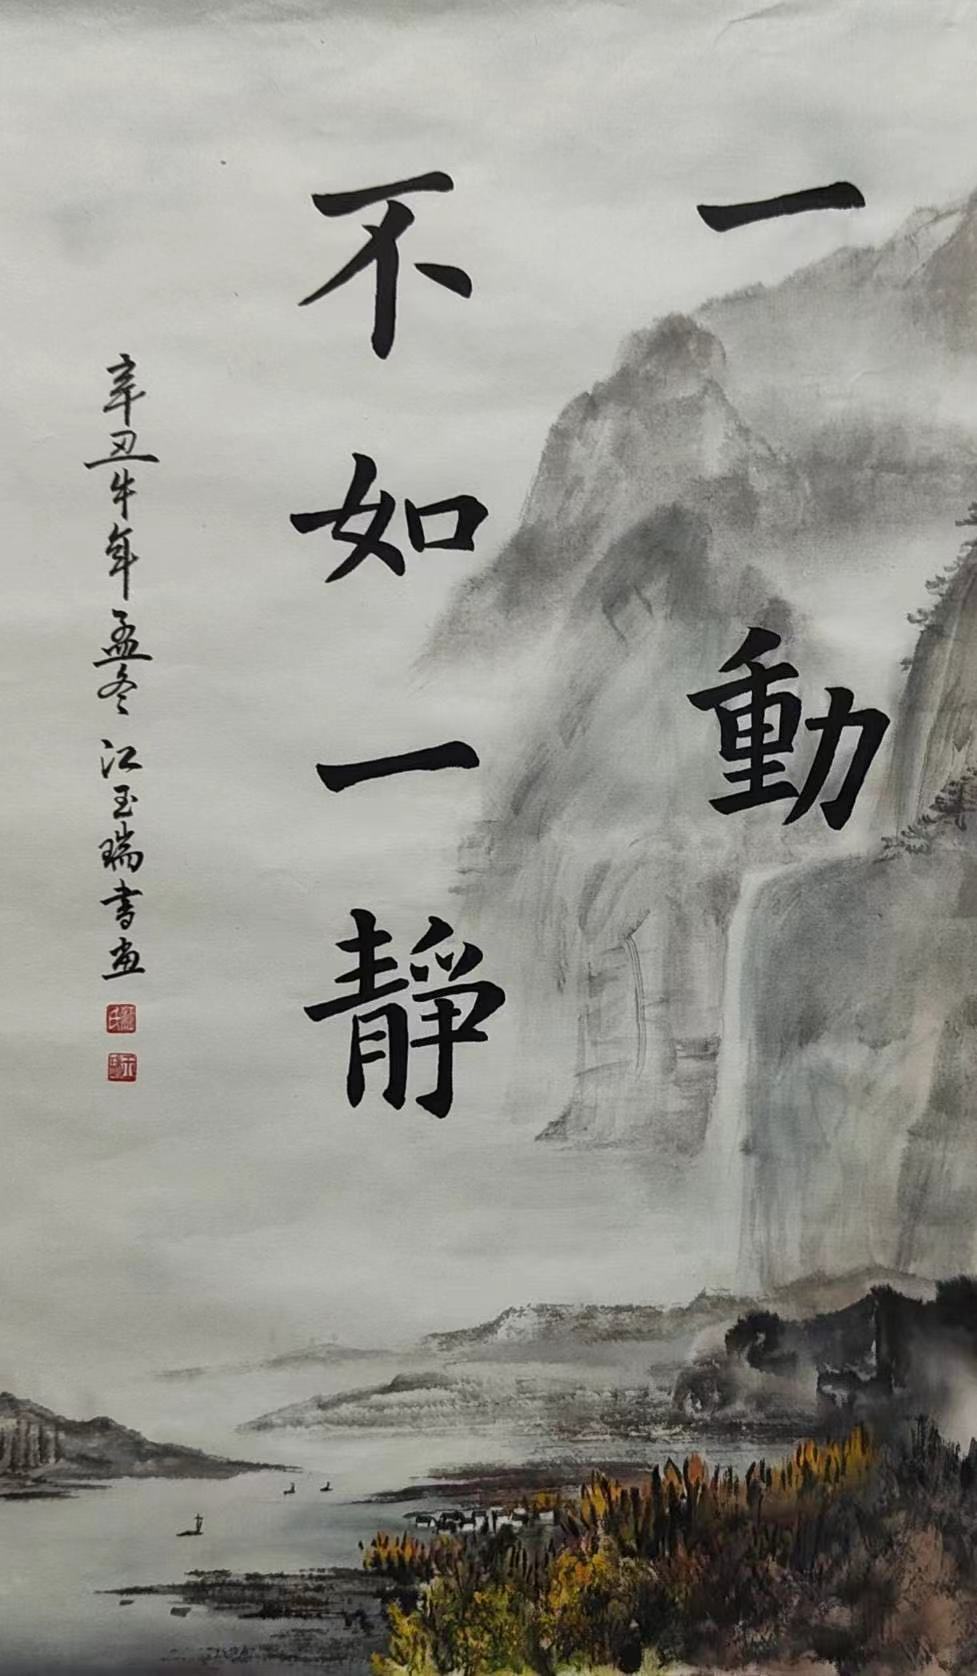 一動
不如一靜
辛丑牛年孟冬 江玉瑞書畫